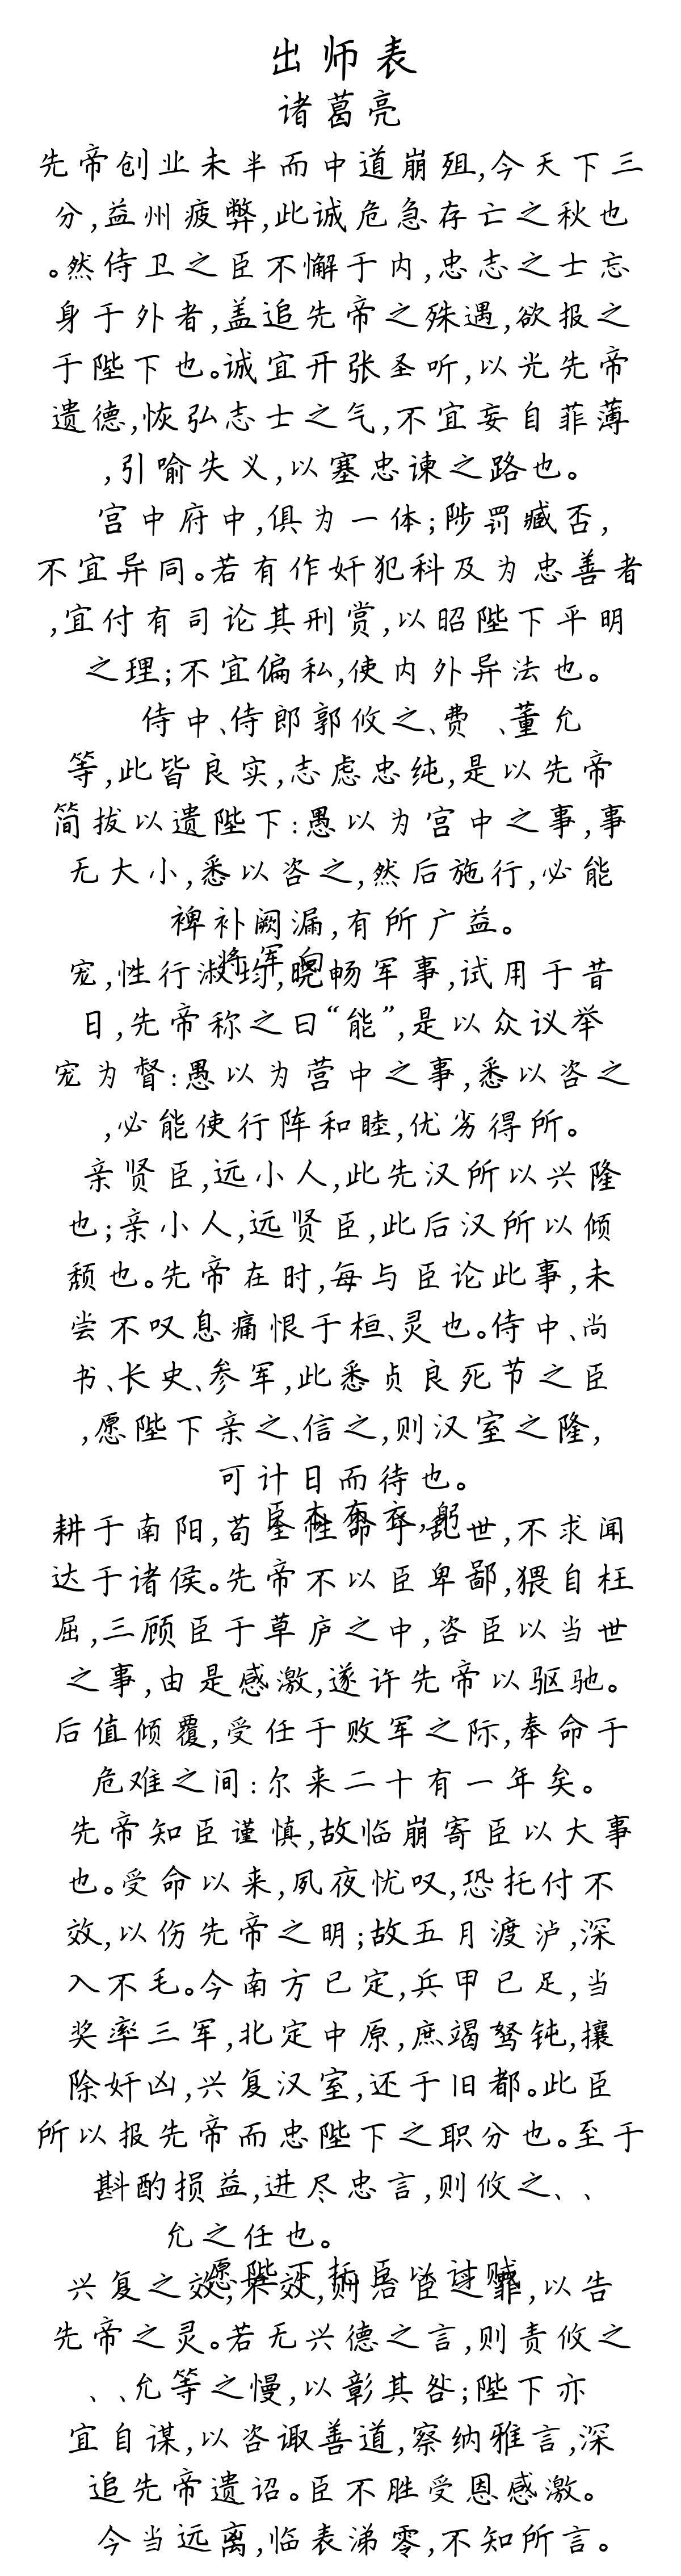 出师表
诸葛亮
先帝创业未半而中道崩殂,今天下三
分,益州疲弊,此诚危急存亡之秋也
。然侍卫之臣不懈于内,忠志之士忘
身于外者,盖追先帝之殊遇,欲报之
于陛下也。诚宜开张圣听,以光先帝
遗德,恢弘志士之气,不宜妄自菲薄
,引喻失义,以塞忠谏之路也。
宫中府中,俱为一体;陟罚臧否,
不宜异同。若有作奸犯科及为忠善者
,宜付有司论其刑赏,以昭陛下平明
之理;不宜偏私,使内外异法也。
侍中、侍郎郭攸之、费 、董允
等,此皆良实,志虑忠纯,是以先帝
简拔以遗陛下:愚以为宫中之事,事
无大小,悉以咨之,然后施行,必能
裨补阙漏,有所广益。
将军向
宠,性行淑均,晓畅军事,试用于昔
日,先帝称之曰“能”,是以众议举
宠为督:愚以为营中之事,悉以咨之
,必能使行阵和睦,优劣得所。
亲贤臣,远小人,此先汉所以兴隆
也;亲小人,远贤臣,此后汉所以倾
颓也。先帝在时,每与臣论此事,未
尝不叹息痛恨于桓、灵也。侍中、尚
书、长史、参军,此悉贞良死节之臣
,愿陛下亲之、信之,则汉室之隆,
可计日而待也。
臣本布衣,躬
耕于南阳,苟全性命于乱世,不求闻
达于诸侯。先帝不以臣卑鄙,猥自枉
屈,三顾臣于草庐之中,咨臣以当世
之事,由是感激,遂许先帝以驱驰。
后值倾覆,受任于败军之际,奉命于
危难之间:尔来二十有一年矣。
先帝知臣谨慎,故临崩寄臣以大事
也。受命以来,夙夜忧叹,恐托付不
效,以伤先帝之明;故五月渡泸,深
入不毛。今南方已定,兵甲已足,当
奖率三军,北定中原,庶竭驽钝,攘
除奸凶,兴复汉室,还于旧都。此臣
所以报先帝而忠陛下之职分也。至于
斟酌损益,进尽忠言,则攸之、、
允之任也。
愿陛下托臣以讨贼
兴复之效,不效,则治臣之罪,以告
先帝之灵。若无兴德之言,则责攸之
、、允等之慢,以彰其咎;陛下亦
宜自谋,以咨诹善道,察纳雅言,深
追先帝遗诏。臣不胜受恩感激。
今当远离,临表涕零,不知所言。